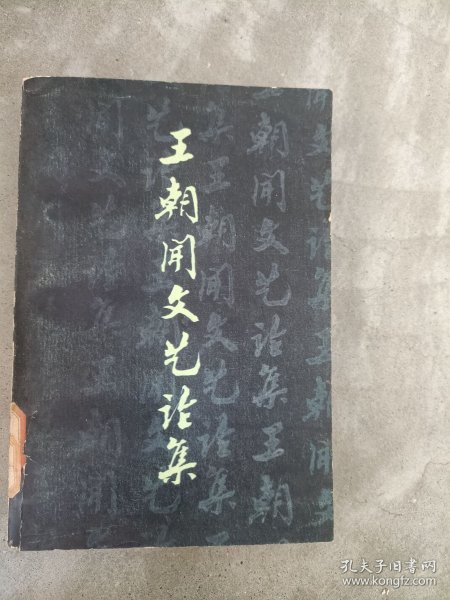 王朝闻文艺论集
孔夫子旧书网
www.kongfz.com